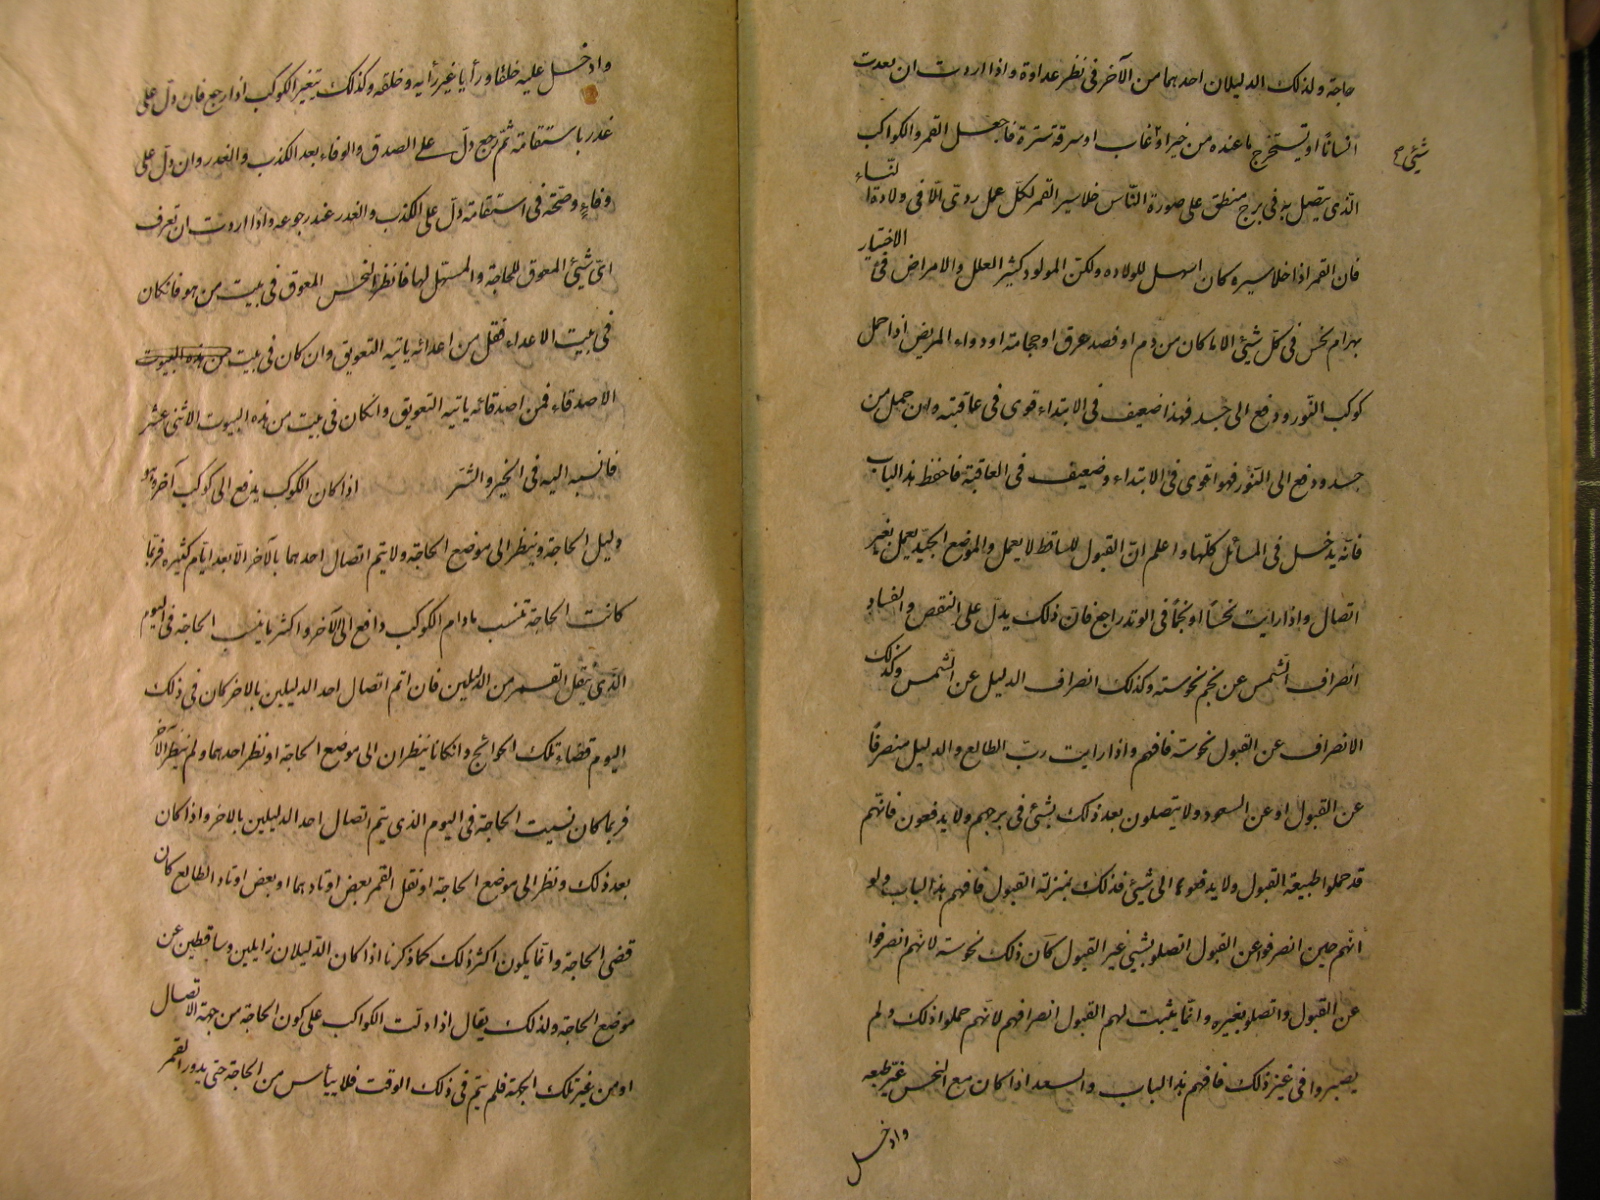 حاجة ولذلك الدليلان احدهما من الآخر فى نظر عداوة واذا اردت ان بعدت
انسانًا او تستخرج ما عنده من خير او غاب او سرقة تسترة فاجعل القمر والكواكب
شيئ
الّذى يتصل به فى برج منطق على صورة النّاس خلا سير القمر لكل عمل ردئ الّا فى ولادة النّساء
فان القمر اذا خلا سيره كان اسهل للولاده ولكن المولود كثير العلل والامراض فى الاختيار
بهرام نحس فى كل شيئ الا ما كان من دم او فصد عرق او حجامة او دواء المريض اذا حمل
كوكب النّور ودفع الى جسد فهذا ضعيف فى الابتداء قوى فى عاقبته وان حمل من
جسد ودفع الى النّور فهو اقوى فى الابتداء وضعيف فى العاقبة فاحفظ هذا الباب
فانّه يدخل فى المسائل كلّها واعلم انّ القبول لساقط لا يعمل والموضع الجيّد يعمل بغير
اتصال واذا رايت نحسًا او نجمًا فى الوتد راجع فان ذلك يدلّ على النقص والفساد
انصراف الشّمس عن نجم نحوسته وكذلك انصراف الدليل عن الشّمس وكذلك
الانصراف عن القبول نحوسة فافهم واذا رايت ربّ الطالع والدليل منصرفًا
عن القبول او عن السعود ولا يتصلون بعد ذلك بشئ فى برجهم ولا يدفعون فانّهم
قد حملوا طبيعة القبول ولا يدفعوها الى شيئ فذلك بمنزلة القبول فافهم هذا الباب ولو
انّهم حين انصرفوا عن القبول اتصلو بشيئ غير القبول كان ذلك نحوسة لانّهم انصرفوا
عن القبول واتصلو بغيره وانّما يثبت لهم القبول انصرافهم لانّهم حملوا ذلك ولم
يصيروا فى غير ذلك فافهم هذا الباب والسعد اذا كان مع النحس غيّر طبعه
وادخل
وادخل عليه خلقًا ورأيا غير رأيه وخلقه وكذلك يتغير الكوكب اذا رجع فان دل على
غدر باستقامة ثمّ رجع دلّ على الصدق والوفاء بعد الكذب والغدر وان دلّ على
وفاءٍ وصحّة فى استقامة دلّ على الكذب والغدر عند رجوعه واذا اردت ان تعرف
اىّ شيئ المعوق للحاجة والمستهل لها فانظر النحس المعوق فى بيت من هو فان كان
فى بيت الاعداء فقل من اعدائه ياتيه التعويق وان كان فى بيت من هذه البيوت
الاصدقاء فمن اصدقائه ياتيه التعويق وان كان فى بيت من هذه البيوت الاثنى عشر
فانسبه اليه فى الخير والشّر اذا كان الكوكب يدفع الى كوكب آخر وهو
دليل الحاجة وينظر الى موضع الحاجة ولا يتم اتصال احدهما بالآخر الّا بعد ايّام كثيره فربما
كانت الحاجة تنسب مادام الكوكب دافع الى الآخر واكثر ما ينسب الحاجة فى اليوم
الّذى ينقل القمر من الدليلين فان اتم اتصال احد الدليلين بالاخر كان فى ذلك
اليوم قضاء تلك الحوائج وان كانا ينظران الى موضع الحاجة او نظر احدهما ولم ينظر الآخر
فربما كان نسيت الحاجة فى اليوم الذى يتم اتصال احد الدليلين بالاخر واذا كان
بعد ذلك ونظر الى موضع الحاجة او نقل القمر بعض اوتادهما او بعض اوتاد الطالع كان
قضى الحاجة وانّما يكون اكثر ذلك كما ذكرنا اذا كان الدّليلان زايلين وساقطين عن
موضع الحاجة ولذلك يقال اذا دلت الكواكب على كون الحاجة من جهة الاتصال
او من غير تلك الجهة فلم يتم فى ذلك الوقت فلا ييأس من الحاجة حتى يدور القمر